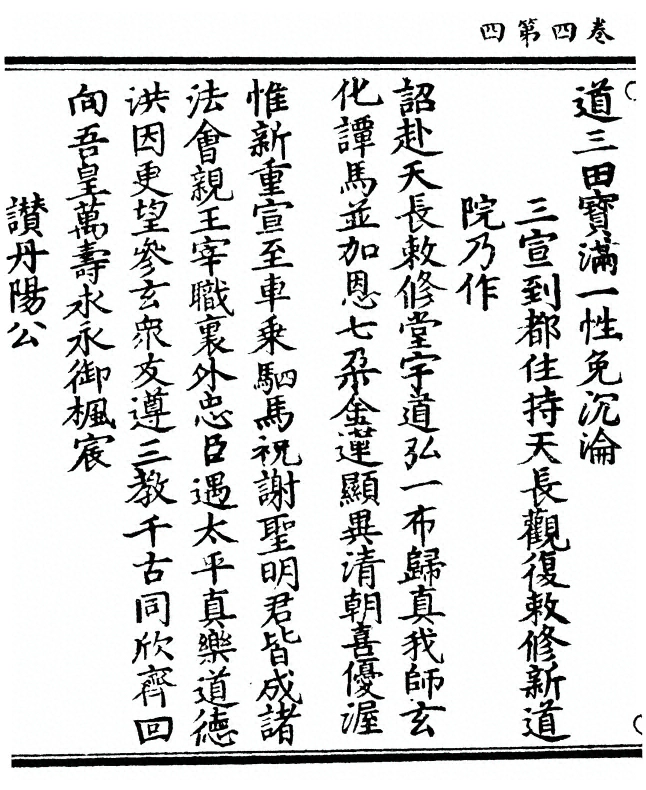 四第四卷
道三田寶滿一性免沉淪
三宣到都住持天長觀復敕修新道
院乃作
詔赴天長敕修堂宇道弘一布歸真我師玄
化譚馬並加恩七朶金蓮顯異清朝喜優渥
惟新重宣至車乘駟馬祝謝聖明君皆成諸
法會親王宰職裏外忠臣遇太平真樂道德
洪因更望參玄衆友遵三教千古同欣齊回
向吾皇萬壽永永御楓宸
讚丹陽公